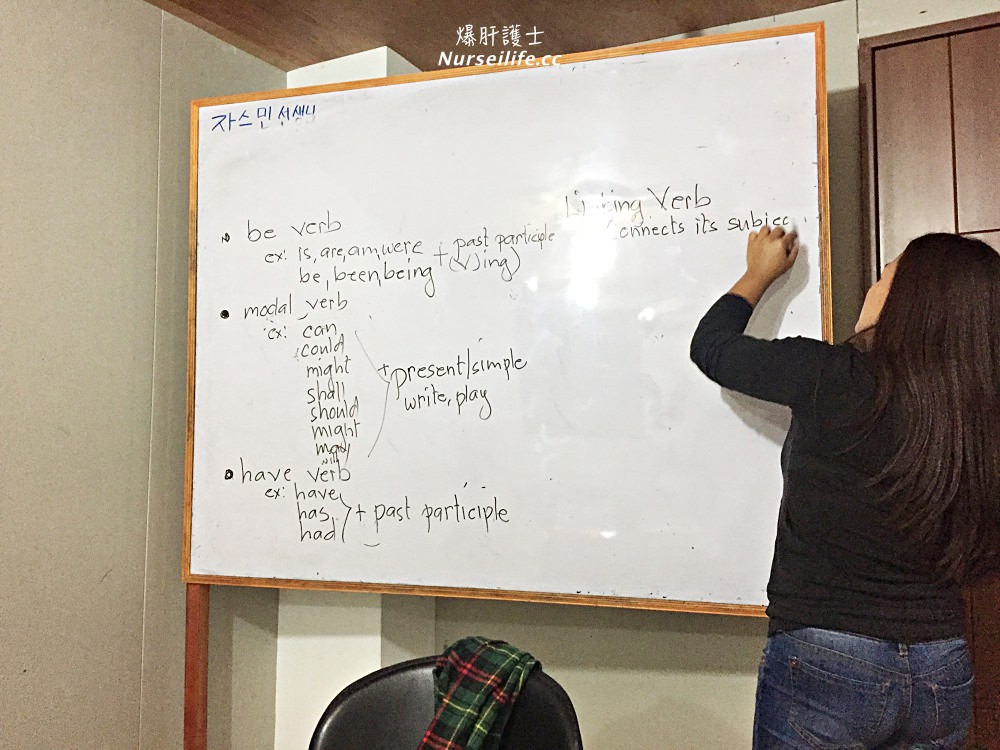 爆肝護士
Nurseilife.cc
자스민 선생님
be verb
ex: is, are, am, were + past participle
be, been, being + (V) ing)
modal verb
ex: can
could
might
shall
should
might
may
will
+ present/simple
write, play
have verb
ex: have
has
had
+ past participle
Linking Verb
Connects its subjec